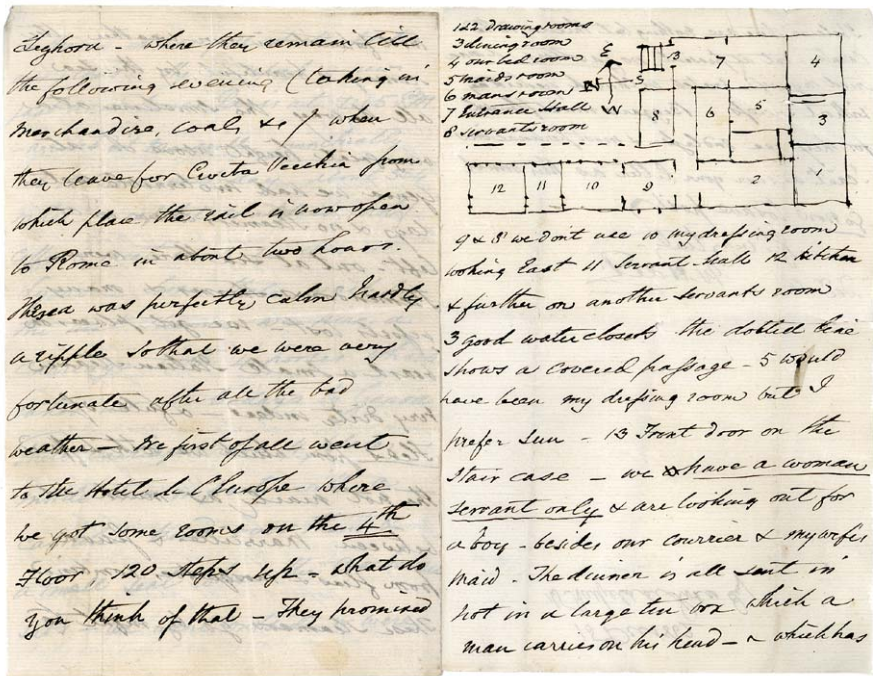 Leghorn - where they remain till
the following evening (taking in
merchandise, coals &c) when
they leave for Civita Vecchia from
which place the rail is now open
to Rome in about two hours.
The sea was perfectly calm hardly
a ripple so that we were very
fortunate after all the bad
weather - We first of all went
to the Hotel de l'Europe where
we got some rooms on the 4th
Floor, 120 steps up - what do
you think of that - They promised
1&2 drawing rooms
3 dining room
4 our bed room
5 maids room
6 mans room
7 Entrance Hall
8 servants room
E
S
N
W
13
7
4
8
6
5
3
12
11
10
9
2
1
9 & 8 we don't use 10 my dressing room
looking East 11 Servants hall 12 kitchen
& further on another servants room
3 good water closets the dotted line
shows a covered passage - 5 would
have been my dressing room but I
prefer sun - 13 Front door on the
Stair case - we have a woman
servant only & are looking out for
a boy - besides our courrier & my wifes
maid - The dinner is all sent in
hot in a large tin box which a
man carries on his head - & which has